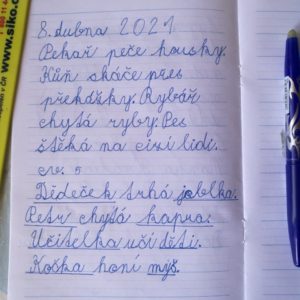 8. dubna 2021
Pekař peče housky.
Kůň skáče přes
překážky. Rybář
chytá ryby. Pes
štěká na cizí lidi.
cv. 5
Dědeček trhá jablka.
Petr chytá kapra.
Učitelka učí děti.
Kočka honí myš.
www.siko.c